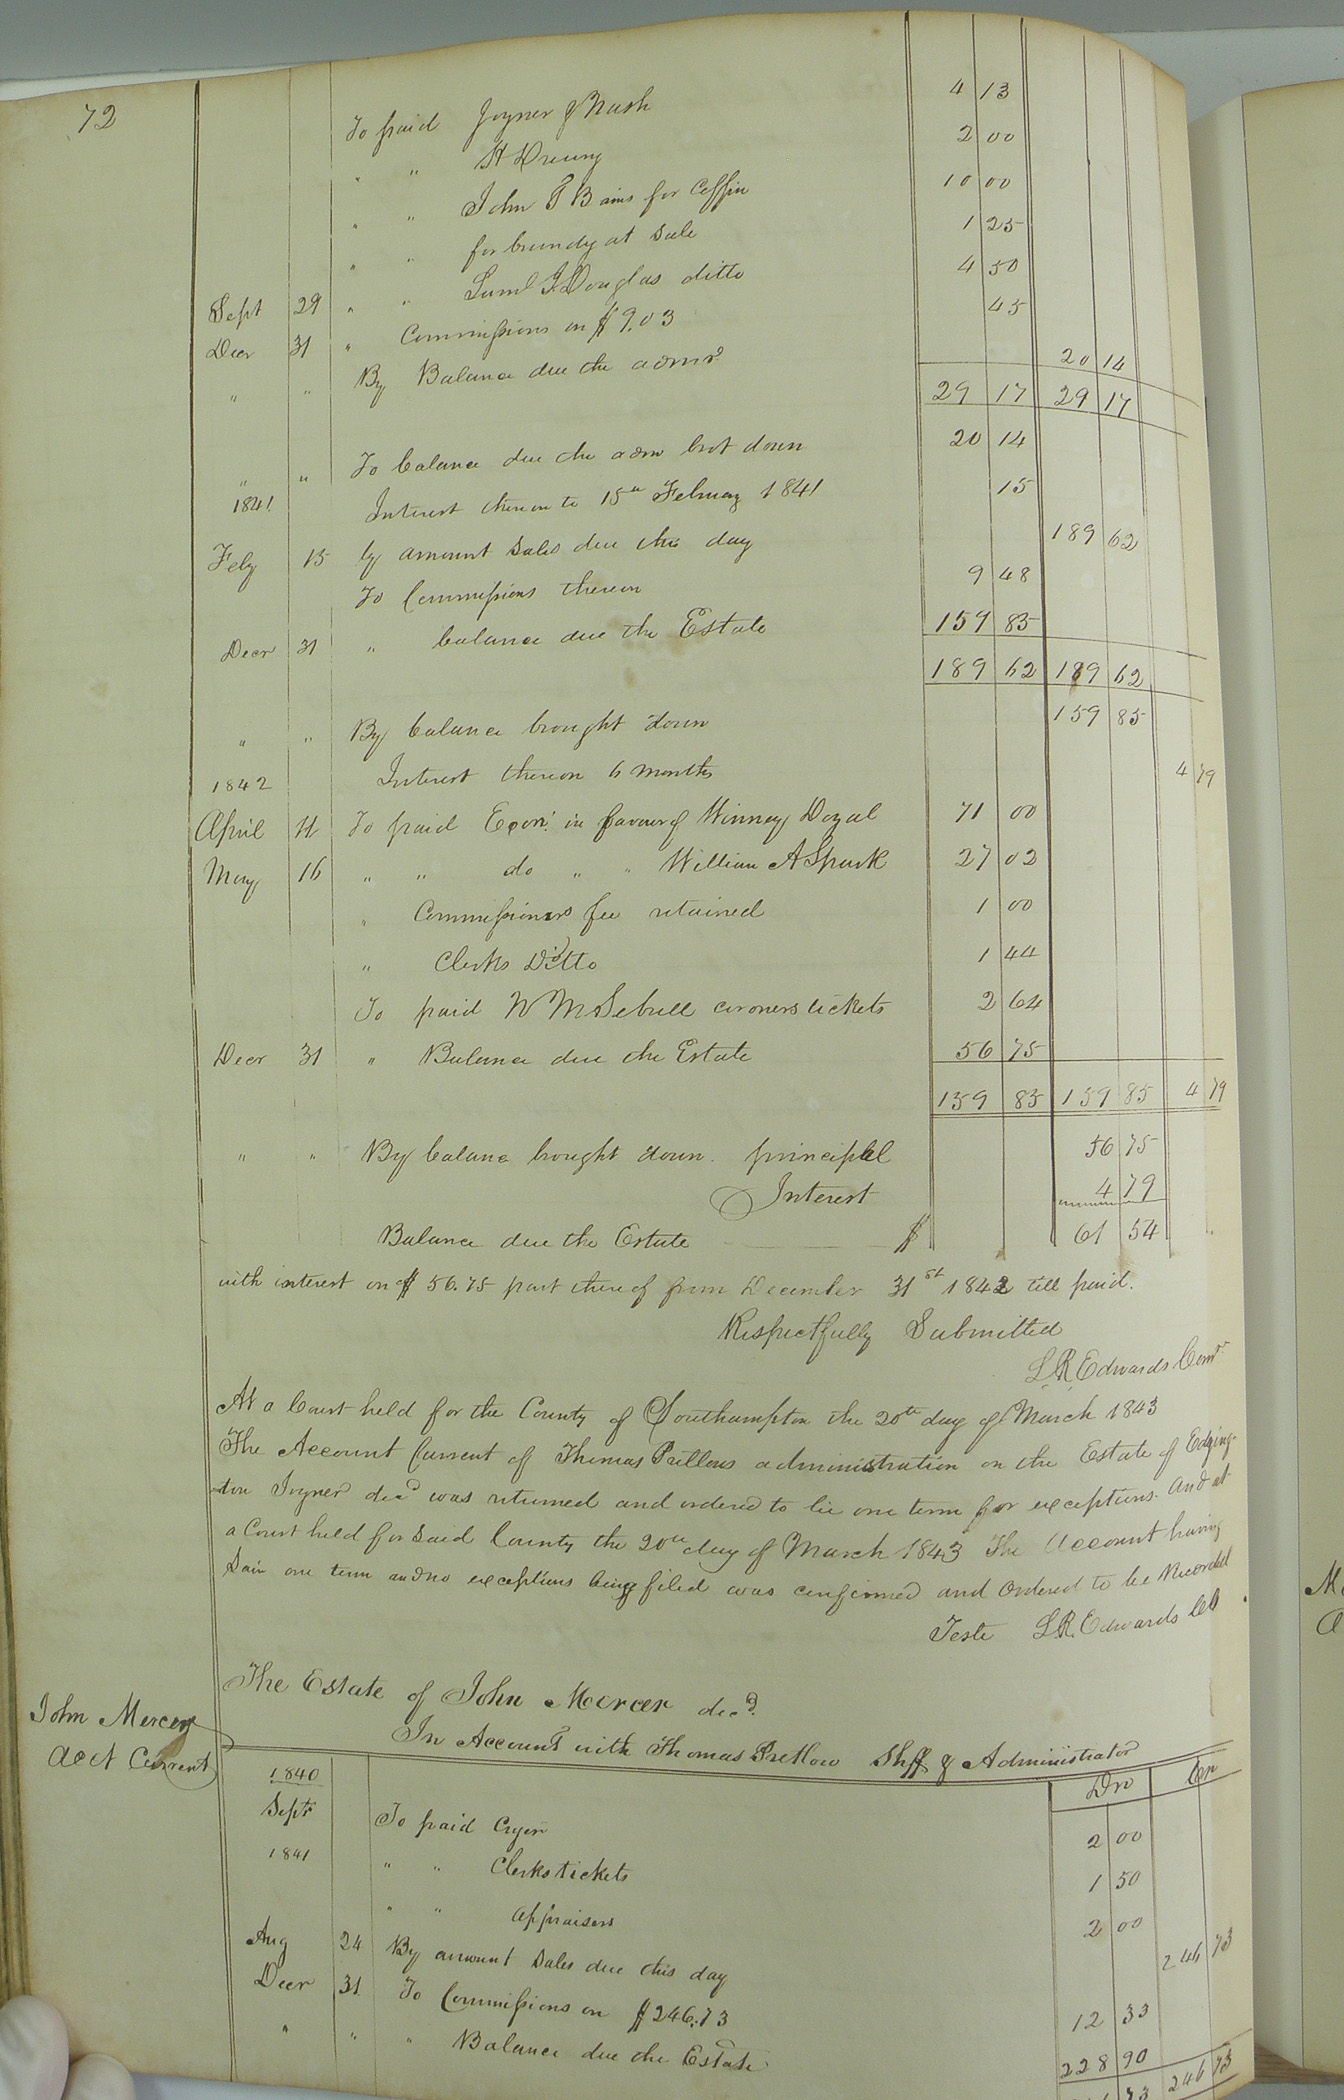 72
To paid Joyner & Nash 4 13
" " H Drewry 2 00
" " John T Bains for Coffin 10 00
" " for brandy at sale 1 25
Sept 29 " " Saml J Douglas ditto 4 50
Decr 31 " Commissions on $9.03 45
" " By Balance due the admr 20 14
29 17 29 17
" " To balance due the adm brot down 20 14
1841 Interest thereon to 15th Februay 1841 15
Feby 15 by amount Sales due this day 189 62
To Commissions thereon 9 48
Decr 31 " balance due the Estate 159 85
189 62 189 62
" " By balance brought down 159 85
1842 Interest thereon 6 months 4 79
April 11 To paid Exon: in favour of Winney Doyal 71 00
May 16 " " do " " William A Spark 27 02
" Commissioners fee retained 1 00
" Clerks Ditto 1 44
To paid W M Sebrell coroners tickets 2 64
Decr 31 " Balance due the Estate 56 75
159 85 159 85 4 79
" " By balance brought down. principal 56 75
Interest 4 79
Balance due the Estate $ 61 54
with interest on $56.75 part thereof from December 31st 1842 till paid.
Respectfully Submitted
L.R. Edwards Comr
At a Court held for the County of Southampton the 20th day of March 1843
The Account Current of Thomas Pretlows administration on the Estate of Edging-
ton Joyner decd was returned and ordered to lie one term for exceptions. And at
a Court held for Said County the 20th day of March 1843 The Account having
Lain one term and no exceptions being filed was confirmed and Ordered to be Recorded
Teste L.R. Edwards Cl
John Mercer
Acct Current
The Estate of John Mercer decd.
In Account with Thomas Pretlow Shff & Administrator
1840 Dr Cr
Sept To paid Cryer 2 00
1841 " " Clerks tickets 1 50
" " appraisers 2 00
Aug 24 By amount Sales due this day 246 73
Decr 31 To Commissions on $246.73 12 33
" " " Balance due the Estate 228 90
246 73